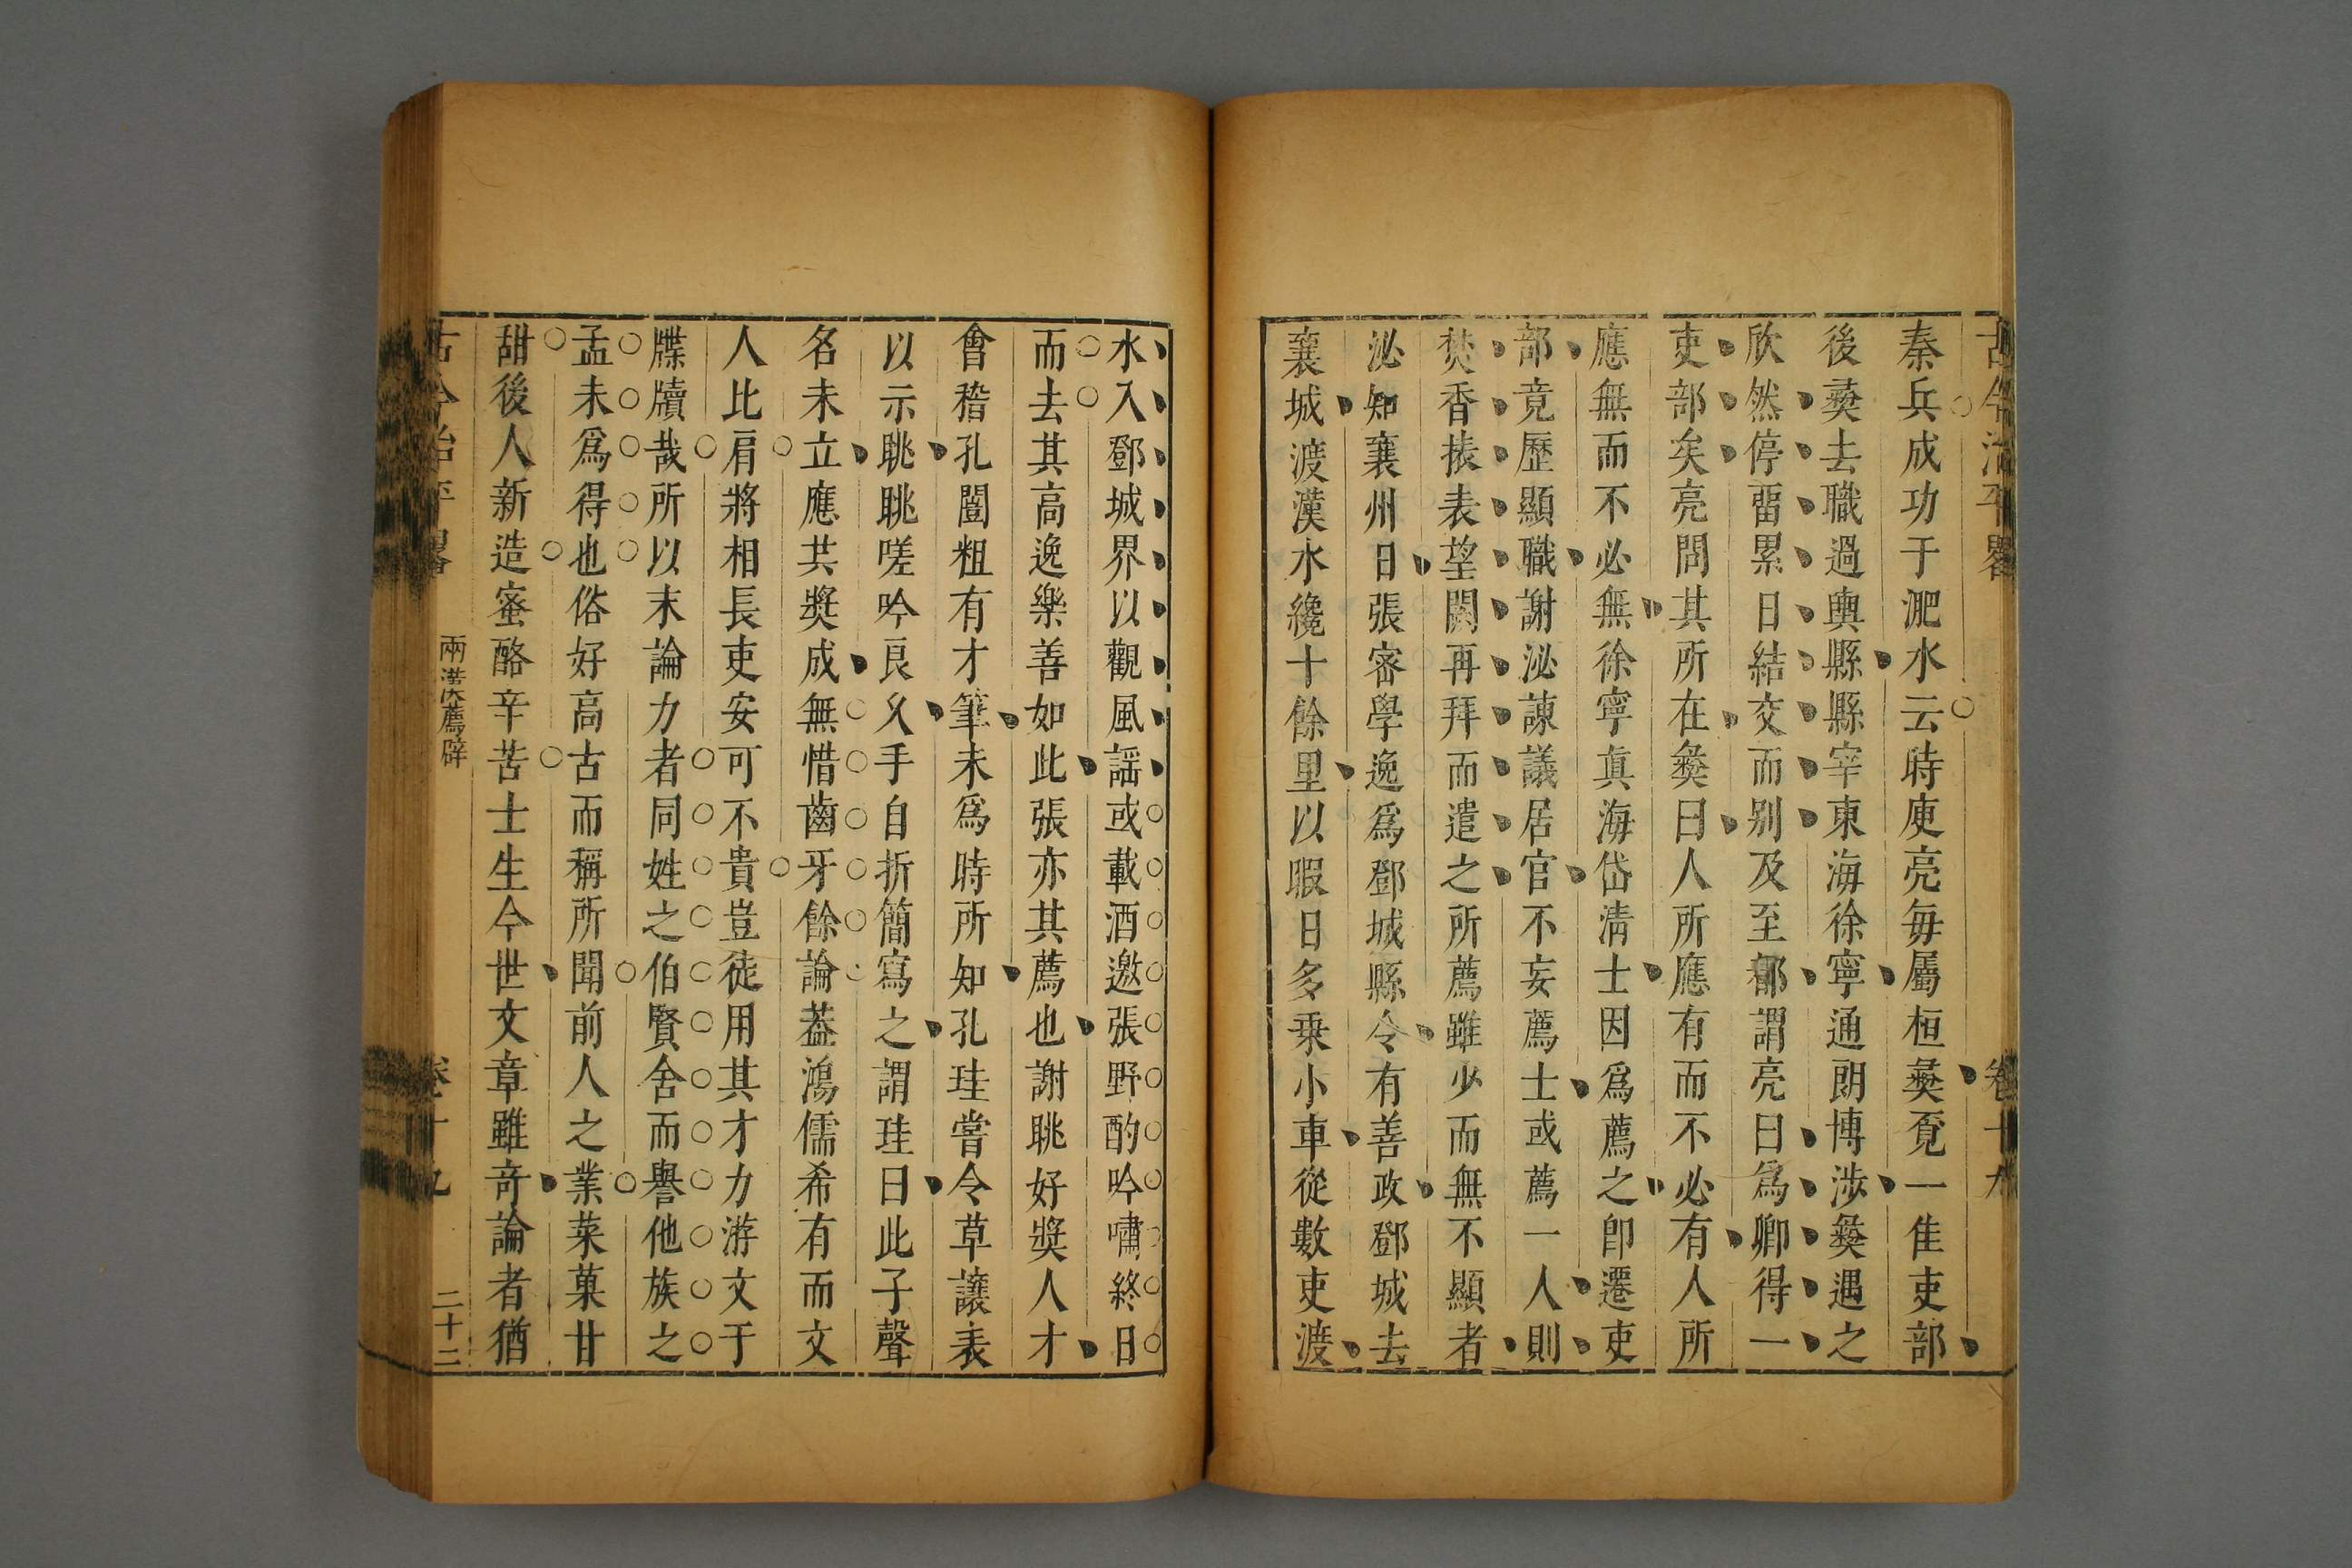 古今治平畧
卷十九
秦兵成功于淝水云時庾亮每屬桓彝覔一佳吏部
後彝去職過輿縣縣宰東海徐寧通朗博涉彝遇之
欣然停畱累日結交而别及至都謂亮曰爲卿得一
吏部矣亮問其所在彝曰人所應有而不必有人所
應無而不必無徐寧真海岱淸士因爲薦之卽遷吏
部竟歷顯職謝泌諫議居官不妄薦士或薦一人則
焚香裱表望闕再拜而遣之所薦雖少而無不顯者
泌知襄州日張宻學逸爲鄧城縣令有善政鄧城去
襄城渡漢水纔十餘里以暇日多乗小車從數吏渡
水入鄧城界以觀風謡或載酒邀張野酌吟嘯終日
而去其高逸樂善如此張亦其薦也謝眺好奬人才
會稽孔闓粗有才筆未爲時所知孔珪嘗令草讓表
以示眺眺嗟吟良久手自折簡寫之謂珪曰此子聲
名未立應共奬成無惜齒牙餘論葢鴻儒希有而文
人比肩將相長吏安可不貴豈徒用其才力游文于
牒牘哉所以末論力者同姓之伯賢舍而譽他族之
孟未爲得也俗好高古而稱所聞前人之業菜菓甘
甜後人新造蜜酪辛苦士生今世文章雖竒論者猶
古今治平畧
兩漢薦辟
卷十九
二十二